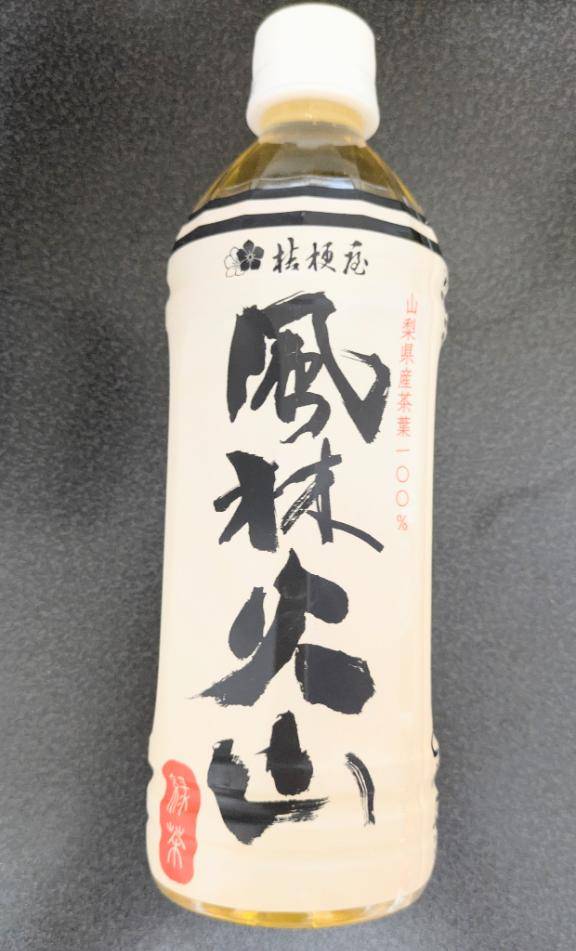 桔梗屋
風林火山
山梨県産茶葉一〇〇%
緑茶